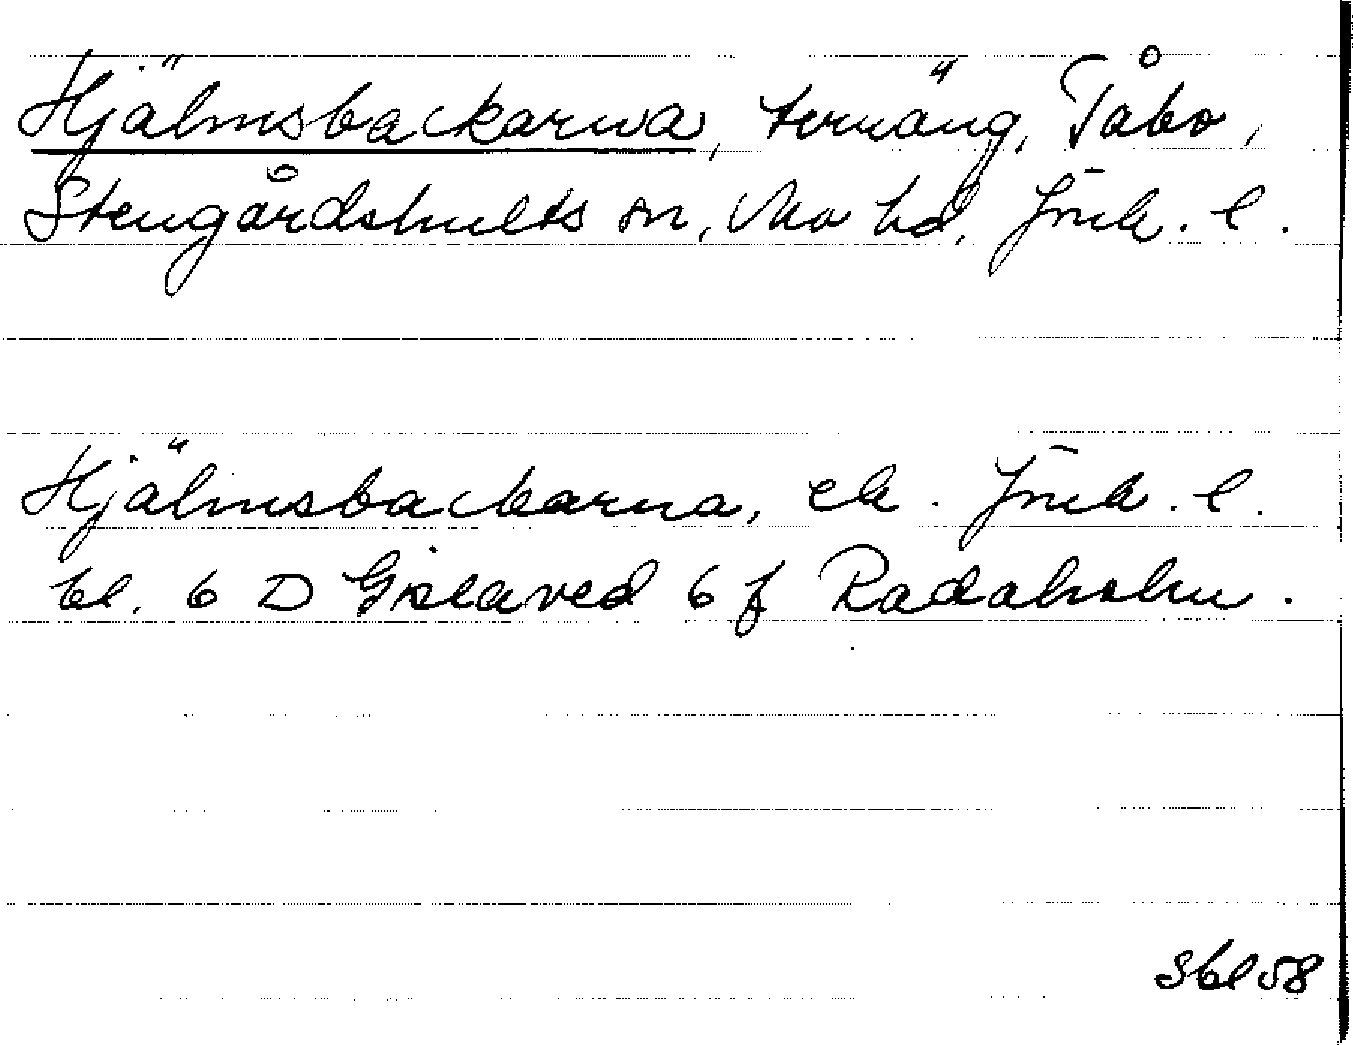 Hjälmsbackarna, terräng, Tåbo,
Stengårdshults sn, Mo hd, Jönk. l.
Hjälmsbackarna, ek. Jönk. l.
bl. 6 D Gislaved 6 f Radaholm.
Sbl 58